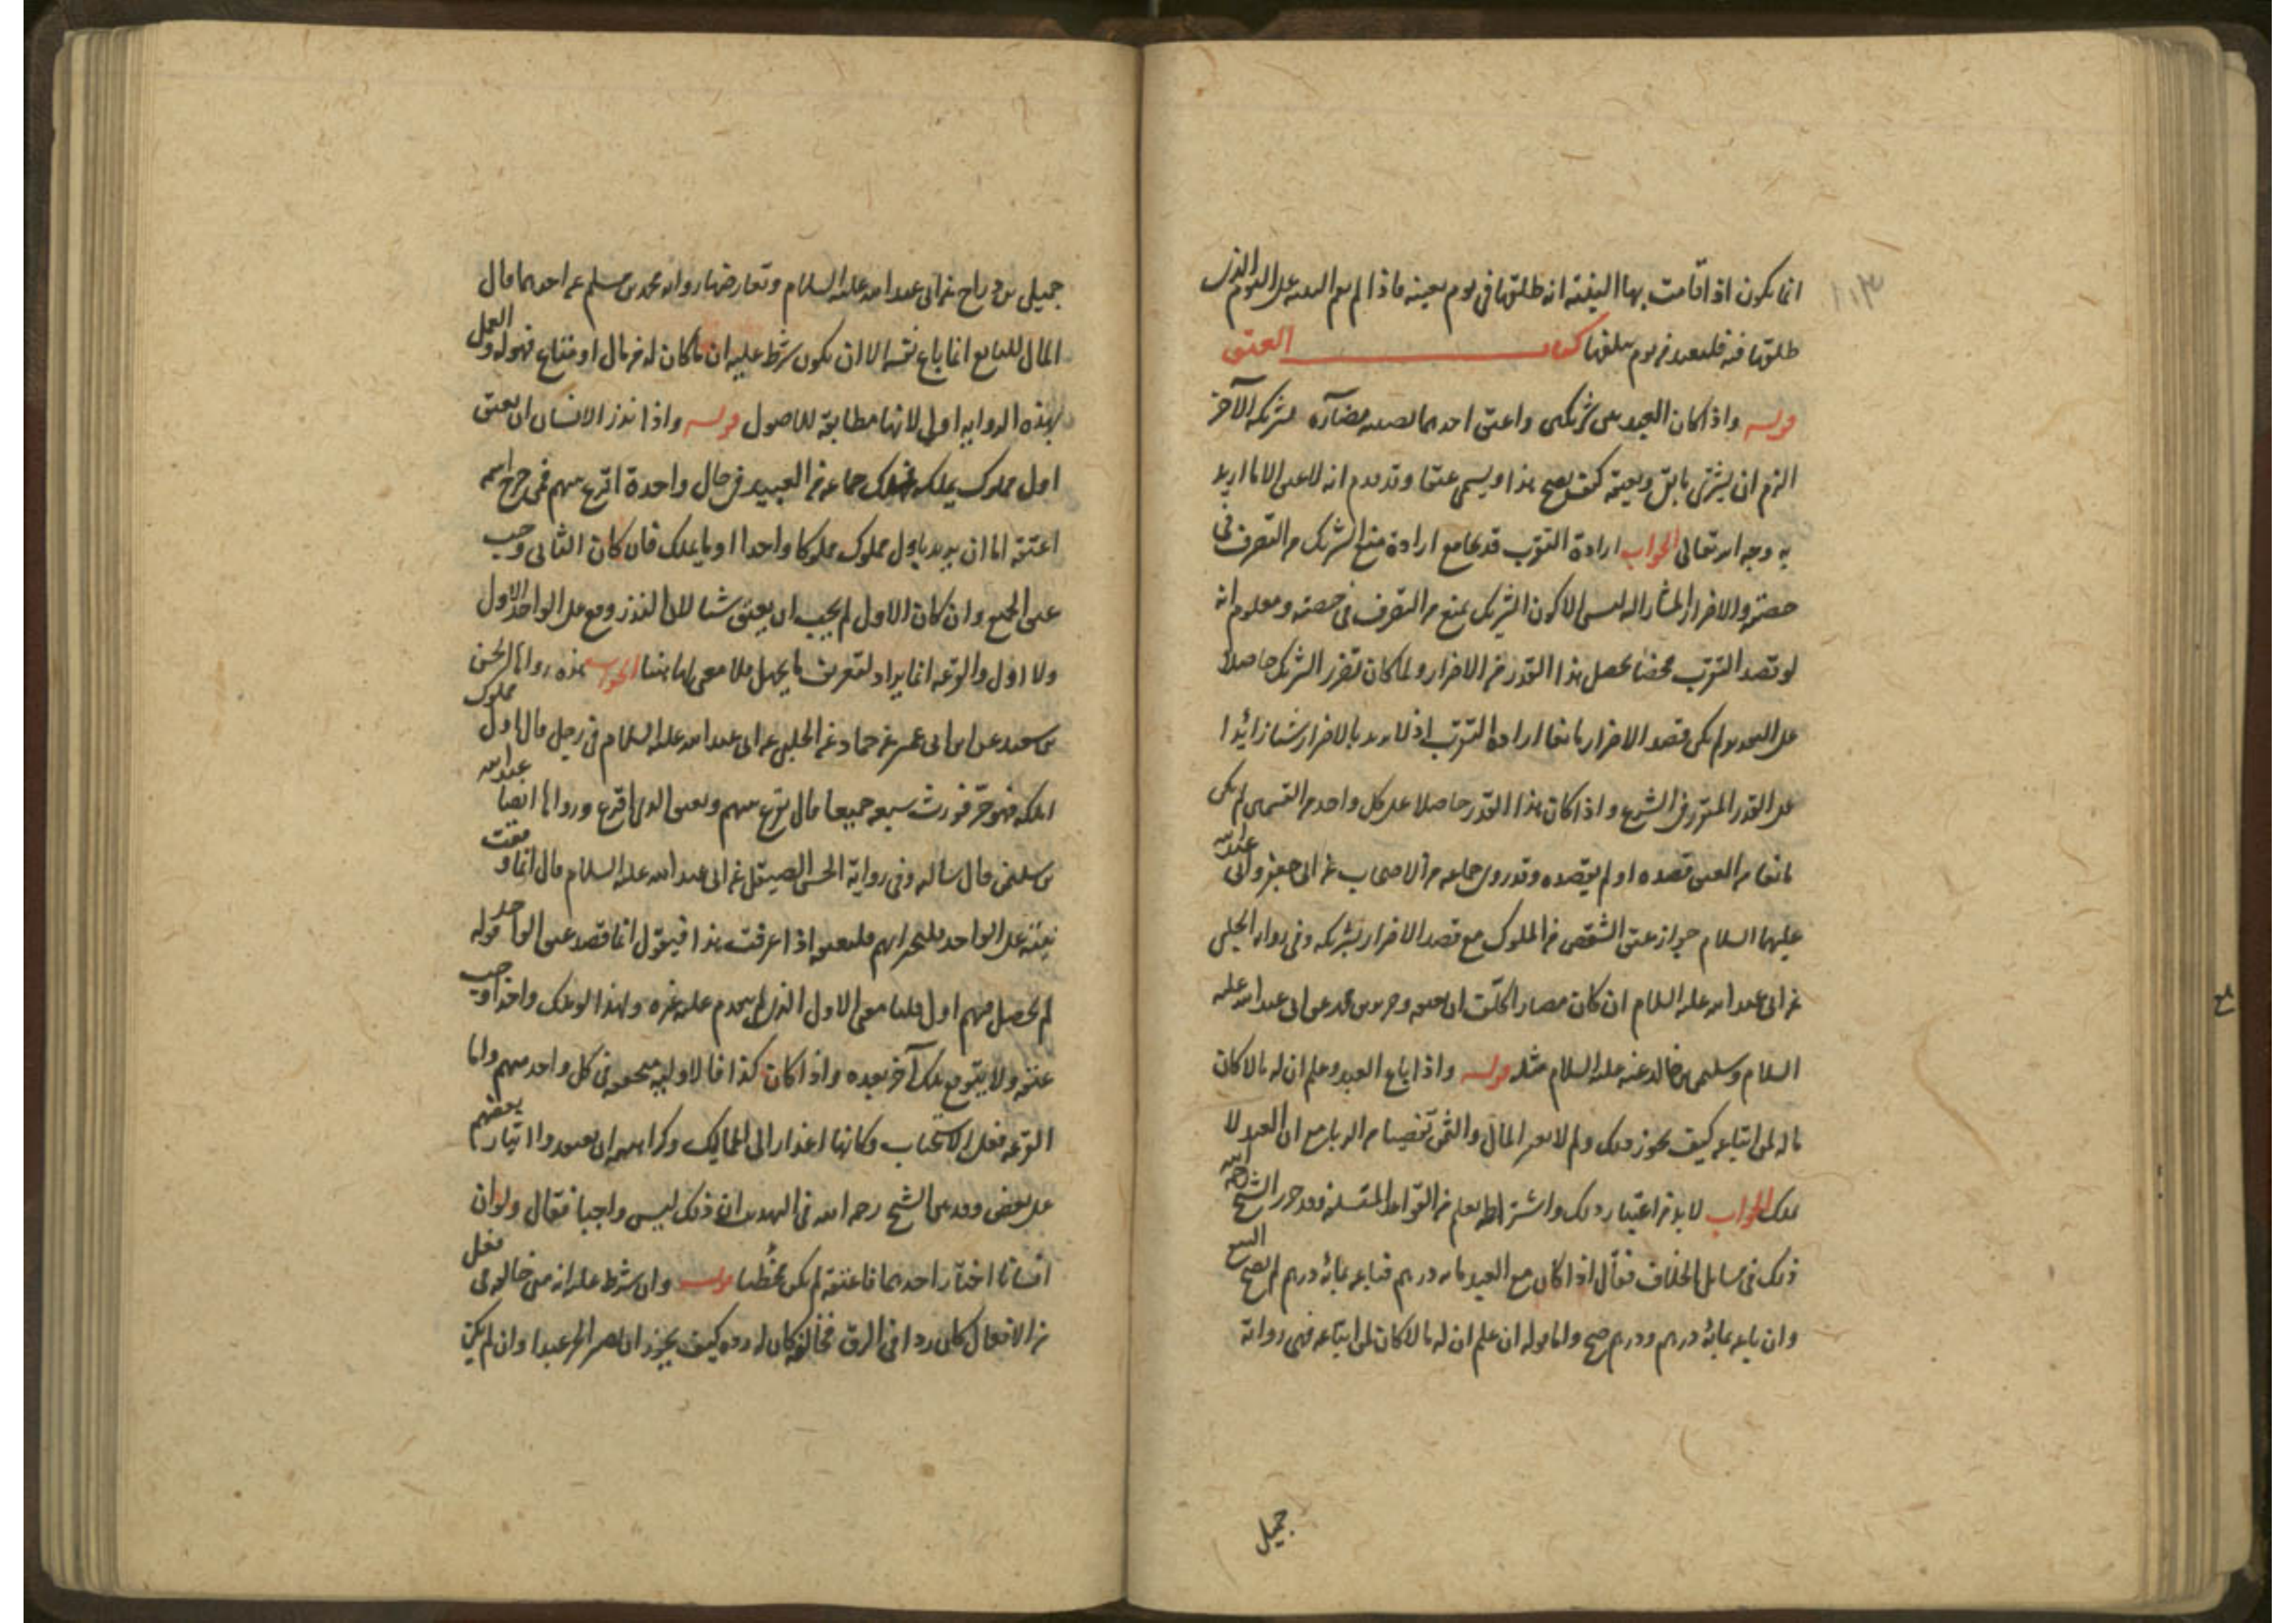 انما يكون اذا قامت بها البينة انه طلقها في يوم بعينه فاذا لم يقم البينة على اليوم الذي
طلقها فيه فلتعتد من يوم يبلغها كتاب العتق
قوله واذا كان العبد بين شريكين واعتق احدهما نصيبه مضارة لشريكه الآخر
الزم ان يشترى ما بقى ويعتقه كيف يصح هذا ويسمى عتقا وقد قدم انه لا عتق الا ما اريد
به وجه الله تعالى الجواب ارادة التقرب قد يجامع ارادة منع الشريك من التصرف في
حصته والاضرار المشار اليه ليس الا كون الشريك يمنع من التصرف في حصته ومعلوم انه
لو قصد التقرب محضا يحصل هذا القدر من الاضرار ولما كان تضرر الشريك حاصلا
على التقديرين لم يكن قصد الاضرار مانعا ارادة التقرب اذ لا يريد بالاضرار شيئا زائدا
على القدر المقرر في الشرع واذا كان هذا القدر حاصلا على كل واحد من القسمين لم يكن
مانعا من العتق قصده او لم يقصده وقد روى جماعة من الاصحاب عن ابى جعفر وابى عبد الله
عليهما السلام جواز عتق الشقص من المملوك مع قصد الاضرار بشريكه وفى رواية الحلبى
عن ابى عبد الله عليه السلام ان كان مضارا كلف ان يعتقه وحريز عن محمد عن ابى عبد الله عليه
السلام وسليمن بن خالد عنه عليه السلام مثله قوله واذا باع العبد وعلم ان له مالا كان
ماله لمن ابتاعه كيف يجوز ذلك ولم لا يعتبر المال والثمن تفصيا من الربا مع ان العبد لا
يملك الجواب لا بد من اعتبار ذلك واشتراطه يعلم من القواعد وقد حرر الشيخ رحمه الله
ذلك في مسايل الخلاف فقال اذا كان مع العبد مائة درهم فباعه بمائة درهم لم يصح البيع
وان باعه بمائة درهم ودرهم صح واما قوله ان علم ان له مالا كان لمن ابتاعه فهى رواية
جميل
جميل بن دراج عن ابى عبد الله عليه السلام وتعارضها رواية محمد بن مسلم عن احدهما قال
المال للبايع انما باع نفسه الا ان يكون شرط عليه ان ما كان له من مال او متاع فهو له والعمل
بهذه الرواية اولى لانها مطابقة للاصول قوله واذا نذر الانسان ان يعتق
اول مملوك يملكه فملك جماعة من العبيد في حال واحدة اقرع بينهم فمن خرج اسمه
اعتقه اما ان يريد باول مملوك مملوكا واحدا او ما يملك فان كان الثانى وجب
عتق الجميع وان كان الاول لم يجب ان يعتق شيئا لان النذر وقع على الواحد الاول
ولا اول والقرعة انما يراد لتعريف ما يجهل فلا معنى لها هنا الجواب هذه رواها الحسن
بن سعيد عن ابن ابى عمير عن حماد عن الحلبى عن ابى عبد الله عليه السلام في رجل قال اول مملوك
املكه فهو حر فورث سبعة جميعا قال يقرع بينهم ويعتق الذى اقرع ورواها ايضا عبد الله
بن سليمن قال سالته وفى رواية الحسن الصيقل عن ابى عبد الله عليه السلام قال انما وقعت
نيته على الواحد فليتخير ايهم فليعتقه اذا عرفت هذا فنقول انما قصد عتق الواحد قوله
لم يحصل منهم اول قلنا معنى الاول الذى لم يتقدم عليه غيره ولهذا لو ملك واحدا وجب
عتقه ولا يتوقع ملك آخر بعده واذا كان كذا فالاولية متحققة في كل واحد منهم واما
القرعة فعلى الاستحباب وكانها اعذار الى المماليك وكراهية ان يعتقدوا ايثار بعضهم
على بعض وقد بين الشيخ رحمه الله في التهذيب ان ذلك ليس واجبا فقال ولو ان
انسانا اختار احدهما فاعتقه لم يكن مخطئا قوله وان شرط عليه انه متى خالفه في فعل
من الافعال كان ردا في الرق فخالفه كان له رده كيف يجوز ان يصير الحر عبدا وان لم يكن